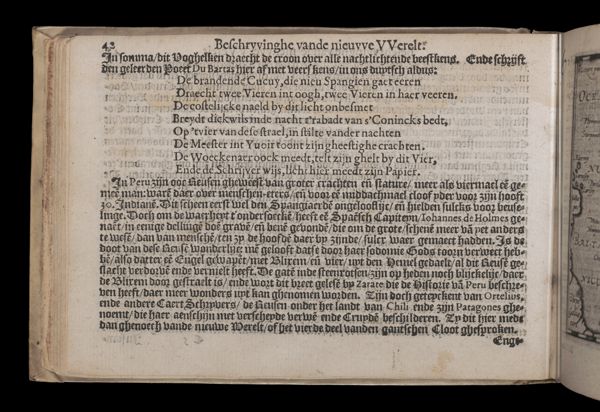 42 Beschryvinghe vande nieuvve VVerelt.
In somma/dit Voghelken draecht de croon over alle nachtlichtende beestkens. Ende schrijft
den geleerden Poeet Du Bartas hier af met veerskens/in ons duytsch aldus:
De brandende Cucuy, die nieu Spangien gaet eeren
Draecht twee Vieren int oogh, twee Vieren in haer veeren.
De costelijcke naeld by dit licht onbesmet
Breydt dickwils inde nacht t'rabadt van s'Conincks bedt,
Op 'tvier van dese strael, in stilte vander nachten
De Meester int Yvoir toont zijn gheestighe crachten.
De Woeckenaer oock meedt, telt zijn ghelt by dit Vier,
Ende de Schrijver wijs, licht hier meedt zijn Papier.
In Peru zijn ooc Reusen gheweest van groter crachten eñ stature/ meer als viermael eē ge-
meē man: want daer over menschen-eters/ eñ voor eē middachmael cloof yder voor zijn hooft
30. Indianē. Dit scheen eerst wel den Spangiaerdē ongelooflijc/ eñ hielden sulcks voor beuse-
linge. Doch om de waerheyt t'onderfoeckē/ heeft eē Spaēsch Capiteyn/ Iohannes de Holmes ge-
naēt/ in eenige dellingē doē gravē/ eñ benē gevondē/ die om de grote/ schenē meer vā yet anders
te wesē/ dan van menschē/ ten zy de hoofdē daer by zijnde/ sulcx waer gemaect hadden. Is de
doot van dese Reusē wonderlijc wē gelooft datse door haer sodomie Gods toorn verwect heb-
bē/ also datter eē Engel gewapēt/ met Blixem/ eñ vier/ uyt den Hemel gedaelt/ al dit Reusē ge-
slacht verdorvē ende vernielt heeft. De gatē inde steenrotsen/ zijn op heden noch blijckelijc/ daer
de Blixem door gestraelt is/ ende wort dit breet gelesē by Zarate die de Historie vā Peru beschre-
ven heeft/ daer meer wonders uyt kan ghenomen worden. Zijn doch geteyckent van Ortelius,
ende andere Caert Schrijvers/ de Reusen onder het landt van Chili ende zijn Patagones ghe-
noemt/ die haer aenschijn met verscheyde verwē ende Cruydē beschilderen. Zy dit hier mede
dan ghenoech vande nieuwe Werelt/ of het vierde deel vanden gantschen Cloot ghesproken.
Enge-